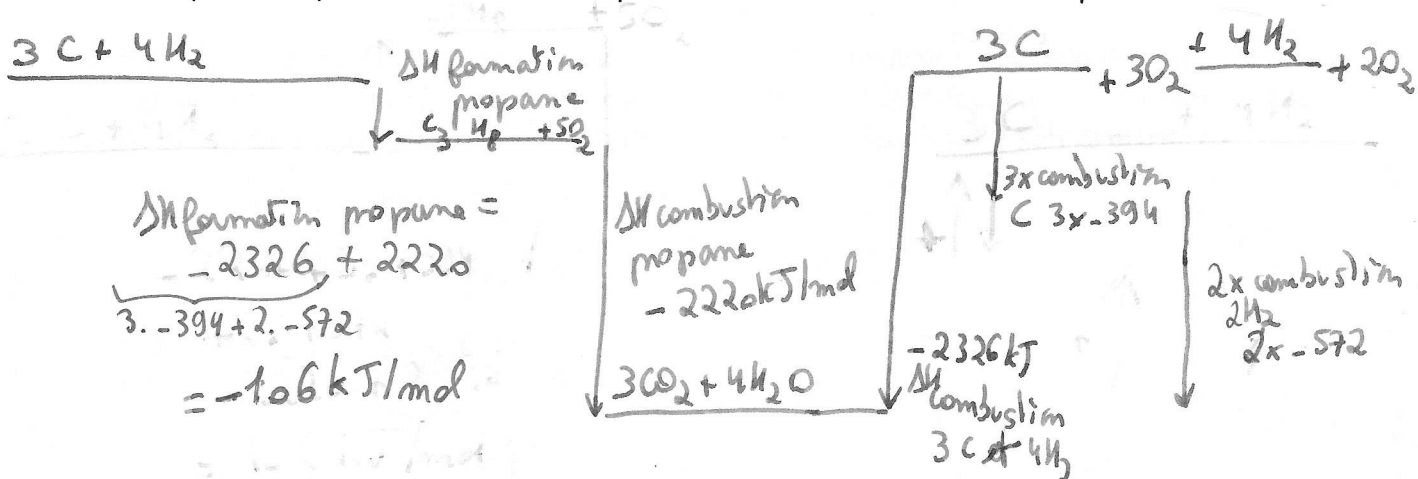 3 C + 4 H₂
ΔH formation
propane
C₃ H₈ + 5O₂
ΔH formation propane =
-2326 + 2220
3. -394 + 2. -572
= -106 kJ/mol
ΔH combustion
propane
- 2220kJ/mol
3CO₂ + 4H₂O
3C + 3O₂ + 4 H₂ + 2O₂
3x combustion
C 3x -394
2x combustion
2H₂
2x -572
-2326 kJ
ΔH
combustion
3 C et 4H₂